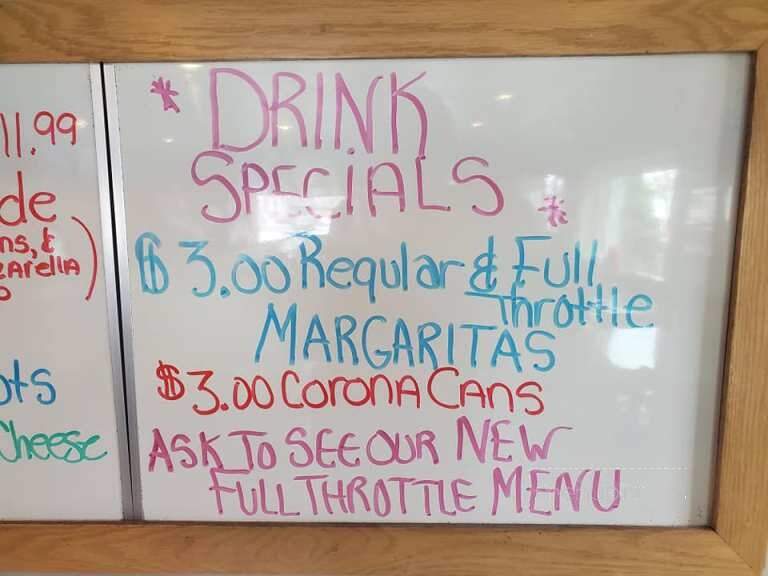 11.99
de
ns, &
zarella
ots
Cheese
* DRINK
SPECIALS *
$3.00 Regular & Full
Throttle
MARGARITAS
$3.00 CORONA CANS
ASK TO SEE OUR NEW
FULL THROTTLE MENU